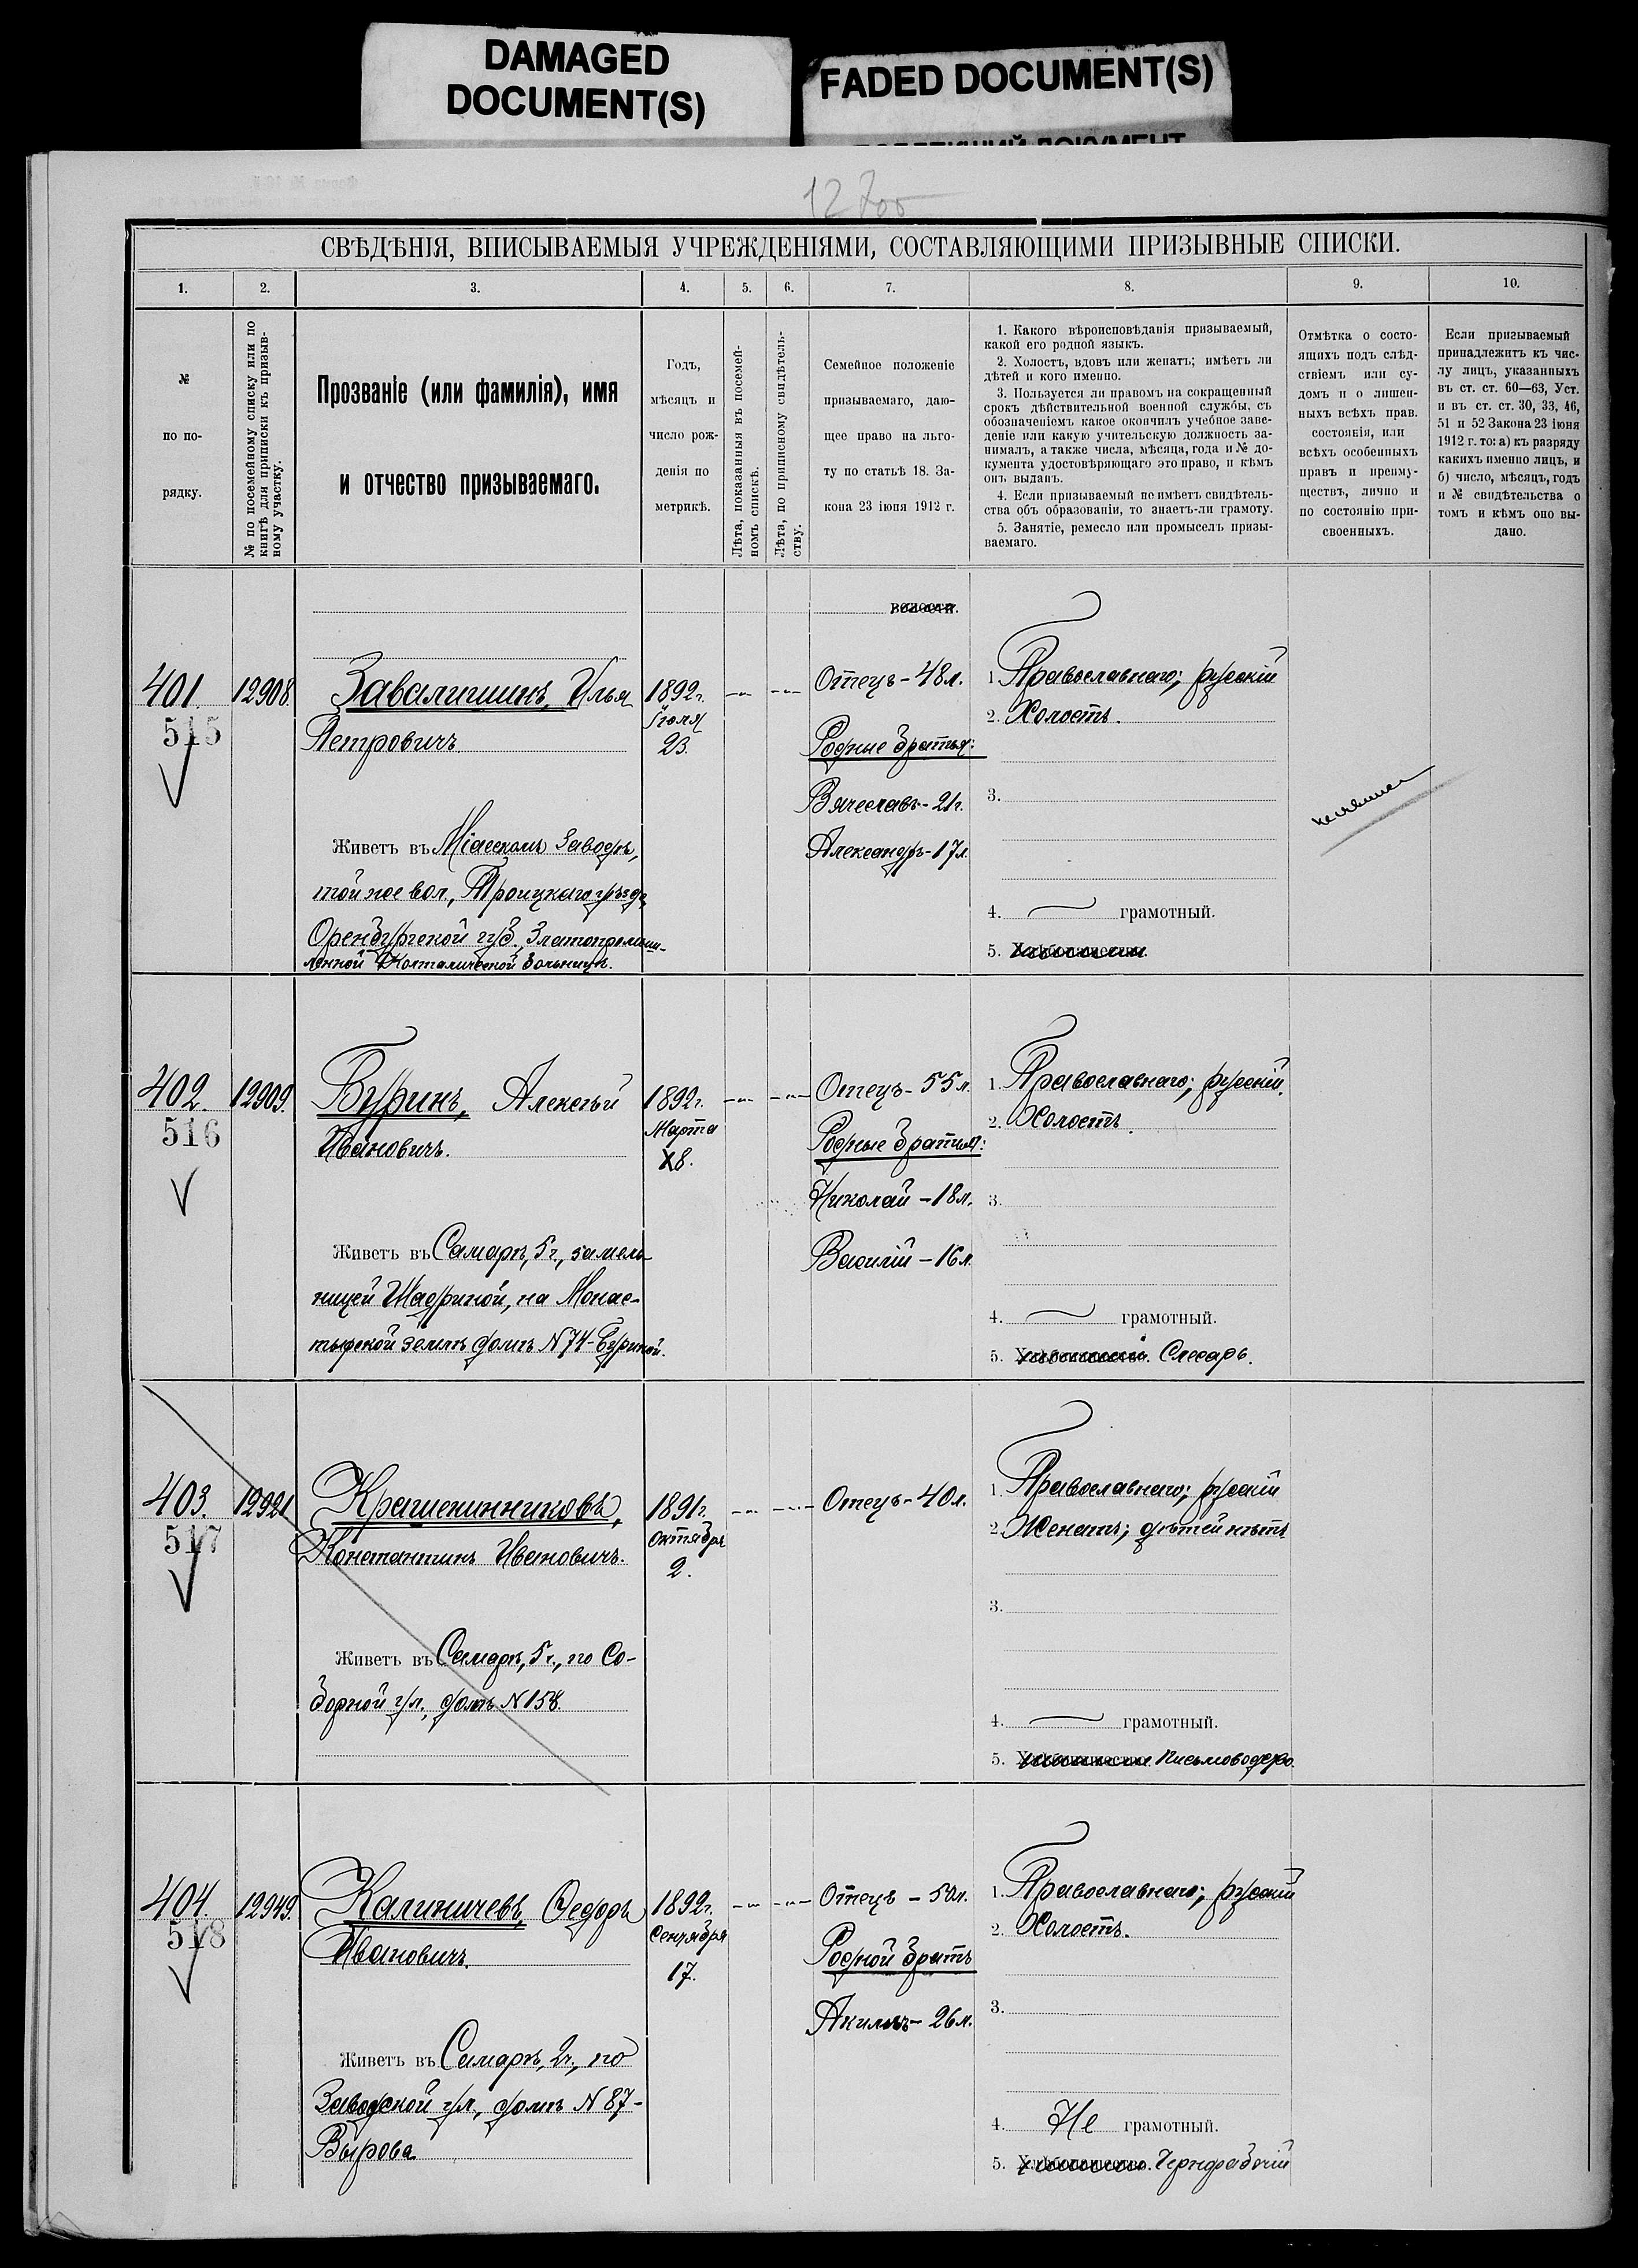 DAMAGED
DOCUMENT(S)
FADED DOCUMENT(S)
СВѢДѢНІЯ, ВПИСЫВАЕМЫЯ УЧРЕЖДЕНІЯМИ, СОСТАВЛЯЮЩИМИ ПРИЗЫВНЫЕ СПИСКИ.
1. 2. 3. 4. 5. 6. 7. 8. 9. 10.
№
по по-
рядку.
№ по посемейному списку или по
книгѣ для приписки къ призыв-
ному участку.
Прозваніе (или фамилія), имя
и отчество призываемаго.
Годъ,
мѣсяцъ и
число рож-
денія по
метрикѣ.
Лѣта, показанныя въ посемей-
номъ спискѣ.
Лѣта, по приписному свидѣтель-
ству.
Семейное положеніе
призываемаго, даю-
щее право на льго-
ту по статьѣ 18. За-
кона 23 іюня 1912 г.
1. Какого вѣроисповѣданія призываемый,
какой его родной языкъ.
2. Холостъ, вдовъ или женатъ; имѣетъ ли
дѣтей и кого именно.
3. Пользуется ли правомъ на сокращенный
срокъ дѣйствительной военной службы, съ
обозначеніемъ какое окончилъ учебное заве-
деніе или какую учительскую должность за-
нималъ, а также числа, мѣсяца, года и № до-
кумента удостовѣряющаго это право, и кѣмъ
онъ выданъ.
4. Если призываемый не имѣетъ свидѣтель-
ства объ образованіи, то знаетъ-ли грамоту.
5. Занятіе, ремесло или промыселъ призы-
ваемаго.
Отмѣтка о состо-
ящихъ подъ слѣд-
ствіемъ или су-
домъ и о лишен-
ныхъ всѣхъ прав.
состоянія, или
всѣхъ особенныхъ
правъ и преиму-
ществъ, лично и
по состоянію при-
своенныхъ.
Если призываемый
принадлежитъ къ чис-
лу лицъ, указанныхъ
въ ст. ст. 60—63, Уст.
и въ ст. ст. 30, 33, 46,
51 и 52 Закона 23 іюня
1912 г. то: а) къ разряду
какихъ именно лицъ, и
б) число, мѣсяцъ, годъ
и № свидѣтельства о
томъ и кѣмъ оно вы-
дано.
волости.
401. 12908.
515
Завалишинъ, Илья
Петровичъ
Живетъ въ Міасскомъ Заводѣ,
той же вол., Троицкаго уѣзда,
Оренбургской губ., Златопромыш-
ленной больницѣ.
1892г.
Іюля
23.
Отецъ - 48 л.
Родные братья:
Вячеславъ - 21 г.
Александръ - 17 л.
1. Православнаго; русскій
2. Холостъ.
3.
4. грамотный.
5. Хлѣбопашество.
402. 12909.
516
Буринъ, Алексѣй
Ивановичъ.
Живетъ въ Самарѣ, 5 ч., за мель
ницей Шадриной, на Монас-
тырской землѣ домъ N 74 - Буриной.
1892г.
Марта
8.
Отецъ - 55 л.
Родные братья:
Николай - 18 л.
Василій - 16 л.
1. Православнаго; русскій.
2. Холостъ.
3.
4. грамотный.
5. Хлѣбопашество. Слесарь.
403. 12921
517
Крашенинниковъ,
Константинъ Ивановичъ.
Живетъ въ Самарѣ, 5 ч., по Со-
борной ул., домъ N 158.
1891г.
Октября
2.
Отецъ - 40 л.
1. Православнаго; русскій
2. Женатъ; дѣтей нѣтъ
3.
4. грамотный.
5. Хлѣбопашество. Письмоводство.
404. 12949.
518
Калиничевъ, Федоръ
Ивановичъ.
Живетъ въ Самарѣ, 2 ч., по
Заводской ул., домъ N 87 -
Вырова
1892г.
Сентября
17.
Отецъ - 50 л.
Родной братъ
Акимъ - 26 л.
1. Православнаго; русскій
2. Холостъ.
3.
4. Не грамотный.
5. Хлѣбопашество. Чернорабочій